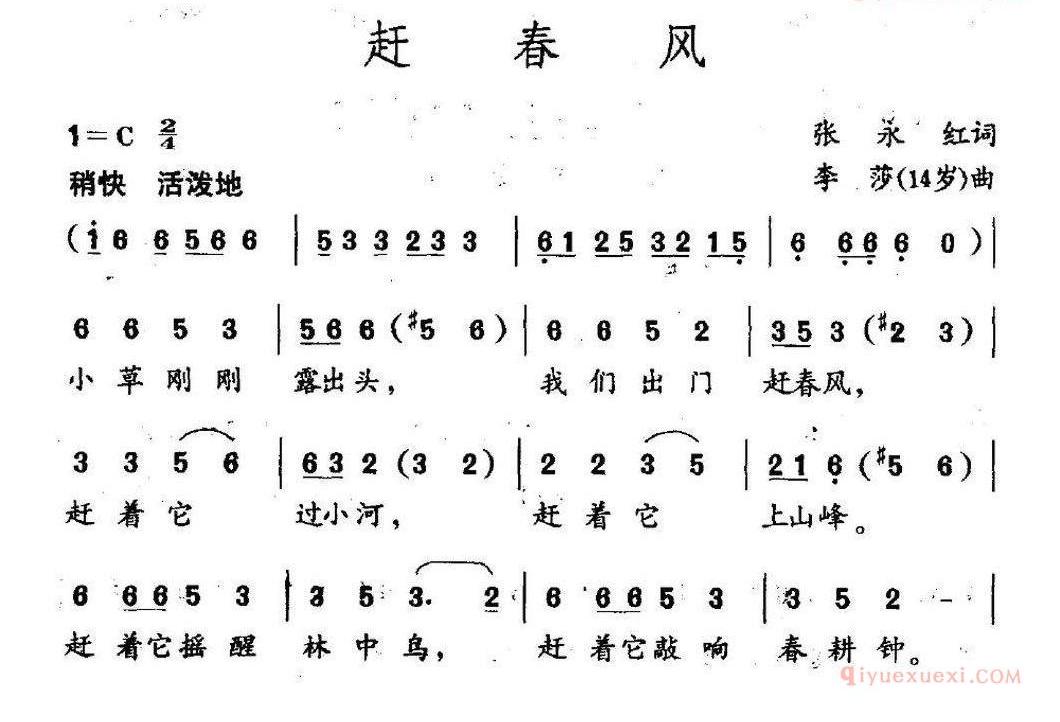 赶 春 风
1=C 2/4
张 永 红词
稍快 活泼地
李 莎(14岁)曲
(1 6 6 5 6 6 | 5 3 3 2 3 3 | 6 1 2 5 3 2 1 5 | 6 6 6 6 0 )|
6 6 5 3 | 5 6 6 (#5 6) | 6 6 5 2 | 3 5 3 (#2 3) |
小 草 刚 刚 露出头, 我 们 出 门 赶春风,
3 3 5 6 | 6 3 2 (3 2) | 2 2 3 5 | 2 1 6 (#5 6) |
赶 着 它 过小河, 赶 着 它 上山峰。
6 6 6 5 3 | 3 5 3. 2 | 6 6 6 5 3 | 3 5 2 - |
赶 着它摇 醒 林 中 鸟, 赶 着它敲 响 春 耕 钟。
qiyuexuexi.COM